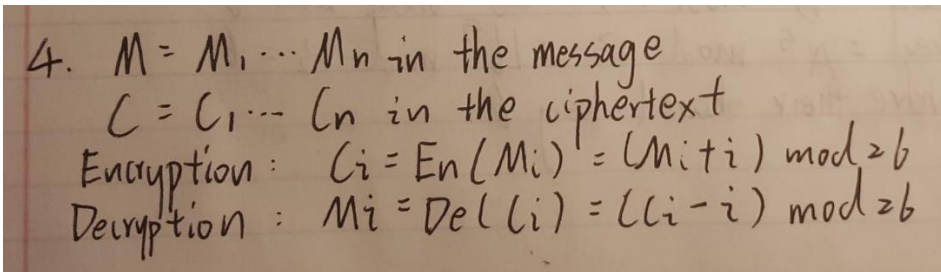 4. M = M₁ ... Mn in the message
C = C₁ ... Cn in the ciphertext
Encryption : Ci = En(Mi) = (Mi+i) mod 26
Decryption : Mi = De(Ci) = (Ci-i) mod 26